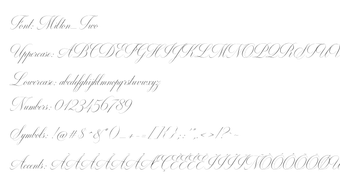 Font: Milton_Two
Uppercase: ABCDEFGHIJKLMNOPQRSTUV
Lowercase: abcdefghijklmnopqrstuvwxyz
Numbers: 0123456789
Symbols: !@#$%&*()
Accents: ÀÁÂÃÄÅÇÈÉÊËÌÍÎÏÑÒÓÔÕÖØÙ